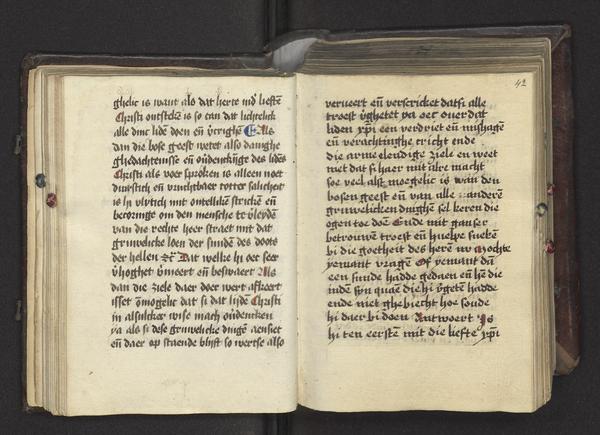 ghelic is want als dat herte mꝫ lieftē
Christi ontstekē is so can dat lichtelick
alle dinc lidē doen eñ v̄crighē Als
dan die bose geest wetet also danighe
ghedachtenisse en ōūdenckīge des lidēs
Christi als voer sproken is alleen noet
durftich eñ vruchtbaer totter salicheit
is hi vlytich mit ontellikē strickē eñ
becoringe om den mensche te v̄leydē
van die rechte heer straet mit dat
gruwelicke loen der sundē des doots
der hellen Dat welke hi oec seer
v̄hoghet v̄meert eñ beswaert Als
dan die ziele daer doer wert afkeert
isset ōmogelic dat si dat lijdē Christi
in alsulcker wise mach ōūdencken
ya als si dese gruwelicke dingē aensiet
eñ daer op staende blijft so wertse also
42
verveert eñ verscricket datsi alle
troest v̄ghetet ya oec ouer dat
liden xp̄i een verdriet eñ mishagē
eñ verachtinghe cricht ende
die arme elendige ziele en weet
niet dat si haer mit alre macht
soe veel alst moegelic is van den
bosen geest eñ van alle anderen
gruwelicken dinghē sel keren die
ogen toe doē Ende mit ganser
betrouwē troest eñ huelpe suekē
bi die goetheit des herē Nv mochte
yemant vragē Of yemant dan
een sunde hadde gedaen eñ hē die
indē sȳn quaē die hi v̄getē hadde
ende niet ghebiecht hoe soude
hi daer bi doen Antwoert Is
hi ten eerstē mit die liefte xp̄i